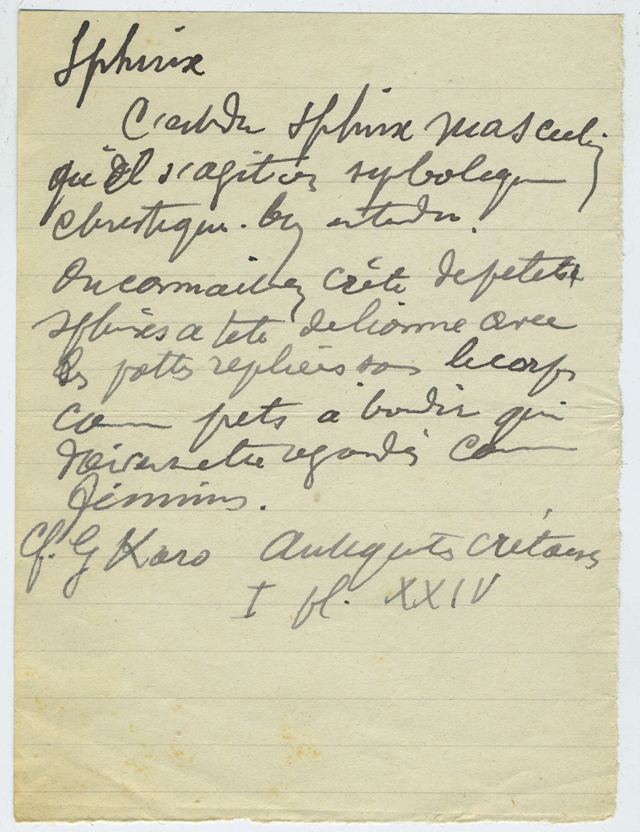 Sphinx
C'est du sphinx masculin
qu'il s'agit en
christique. bien entendu.
On connait en Crète de petits
sphinx a tete de lionne avec
les pattes repliées sous le corps
comme prets a bondir qui
doivent etre regardés comme
féminins.
Cf. G Karo Antiquités crétoises
I pl. XXIV